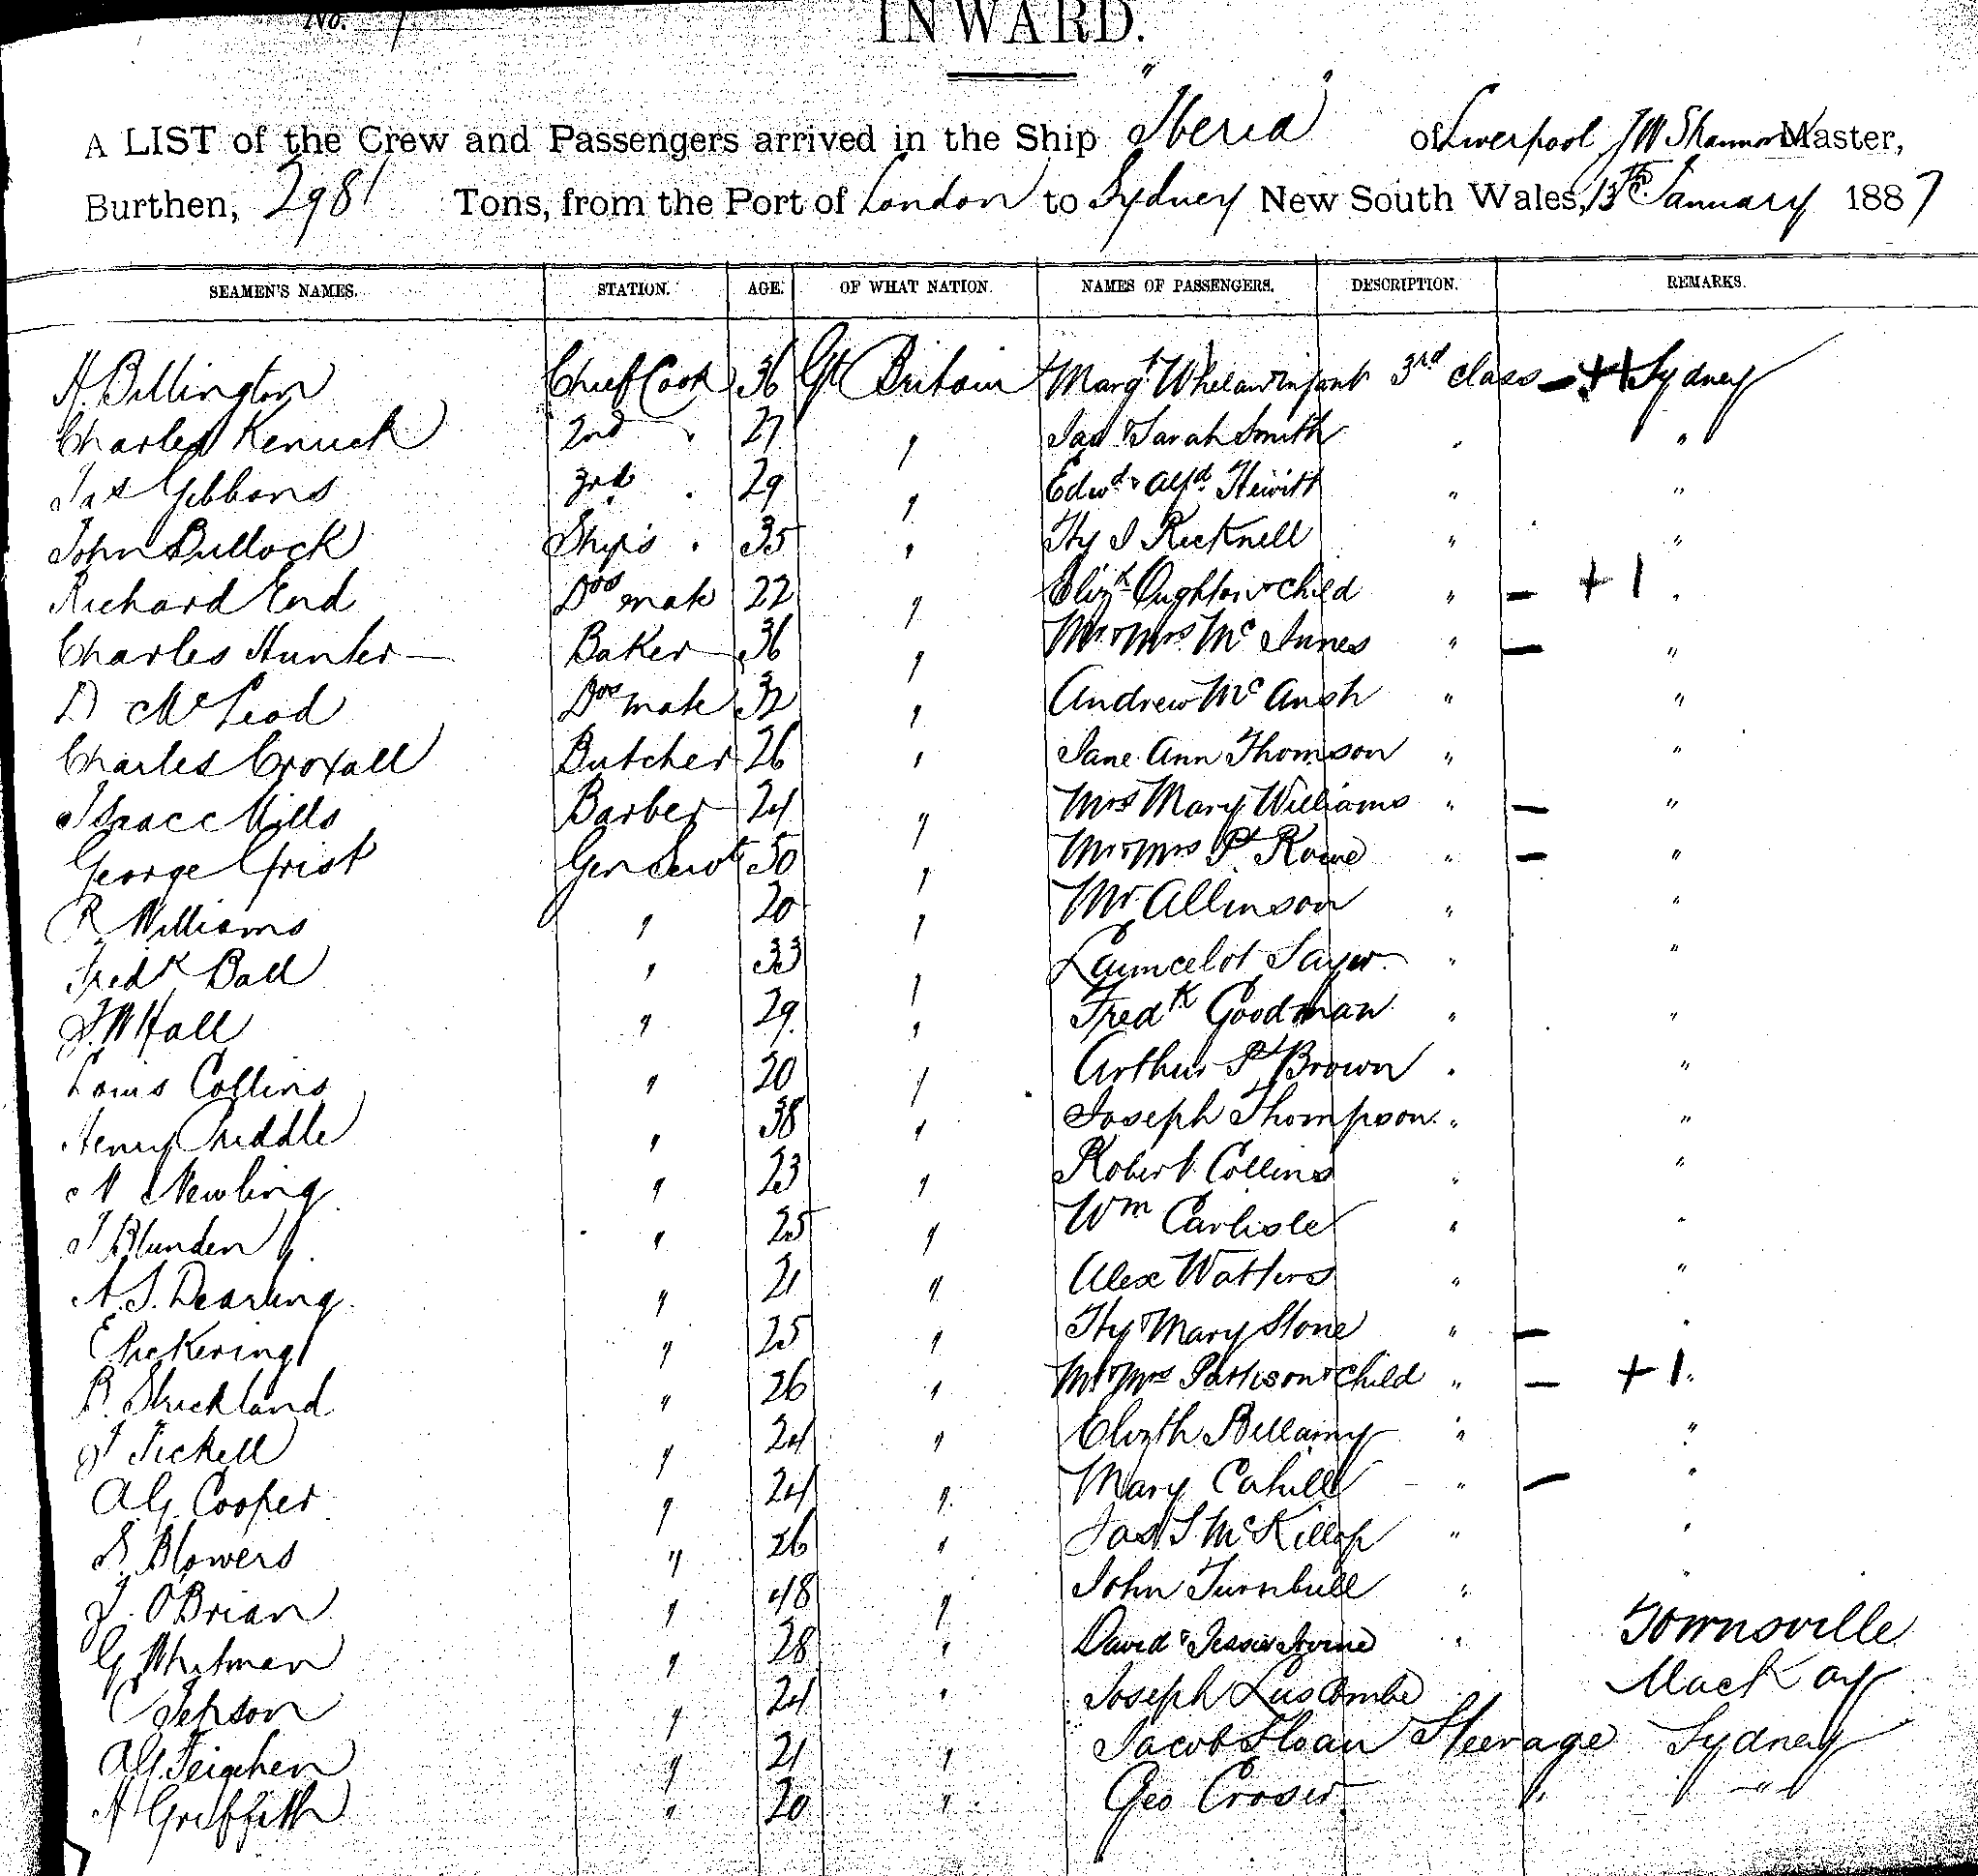 No. 7
INWARD.
A LIST of the Crew and Passengers arrived in the Ship "Iberia" of Liverpool J W Shannon Master,
Burthen, 2981 Tons, from the Port of London to Sydney New South Wales, 13th January 1887
SEAMEN'S NAMES. STATION. AGE. OF WHAT NATION. NAMES OF PASSENGERS. DESCRIPTION. REMARKS.
H. Billington Chief Cook 36 Gt Britain Margt Whelan & Infant 3rd class - + 1 Sydney
Charles Kenuck 2nd " 27 " Jas & Sarah Smith " "
Jas Gibbons 3rd " 29 " Edwd & Alfd Hewitt " "
John Bullock Ship's " 35 " Hy J Ricknell " "
Richard End Dos mate 22 " Elizth Oughton & child " - + 1 "
Charles Hunter Baker 36 " Mr & Mrs McInnes " - "
D McLeod Dos mate 32 " Andrew McAnsh " "
Charles Croxall Butcher 26 " Jane Ann Thomson " "
Isaac Mills Barber 24 " Mrs Mary Williams " - "
George Grist Gen Servt 50 " Mr & Mrs P Rowe " - "
R Williams " 20 " Mr Allinson " "
Fredk Ball " 33 " Launcelot Sayer " "
J. W Hall " 29 " Fredk Goodman " "
Louis Collins " 20 " Arthur P Brown " "
Henry Criddle " 38 " Joseph Thompson " "
N Newling " 23 " Robert Collins " "
J Blunden " 25 " Wm Carlisle " "
A. S. Dearling " 21 " Alex Watters " "
E Pickering " 25 " Hy & Mary Stone " - "
B. Strickland " 26 " Mr & Mrs Pattison & child " - + 1 "
J Tickell " 24 " Elizth Bellamy " "
A G Cooper " 24 " Mary Cahill " - "
S. Blowers " 26 " Jas S McKillop " "
J. O'Brian " 48 " John Turnbull " "
G Whitman " 28 " David & Jessie Irvine " Townsville
C Jepson " 24 " Joseph Luscombe Mackay
A G Feighen " 21 " Jacob Sloan Steerage Sydney
A Griffith " 20 " Geo Croser " "